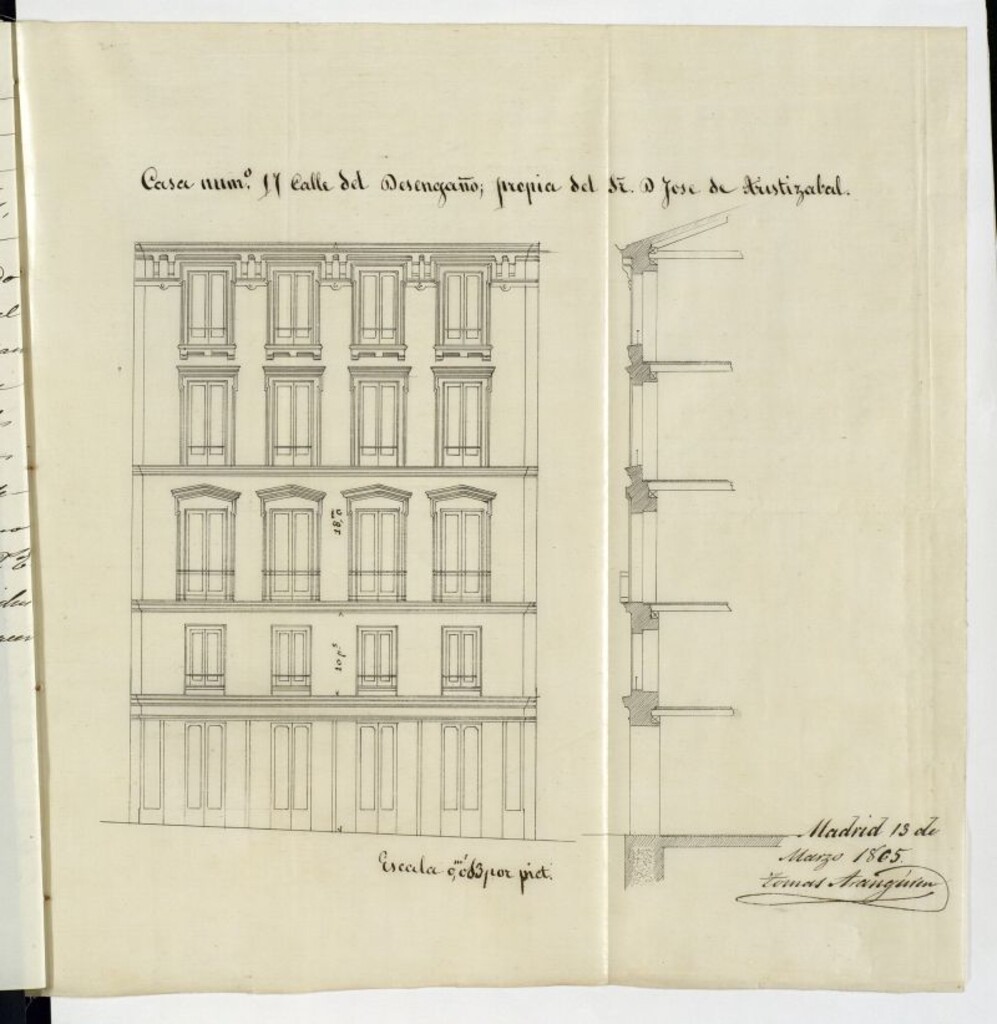 Casa num.º 17 Calle del Desengaño; propia del Sr. D Jose de Aristizabal.
10 p.s
Escala por piet.
Madrid 13 de
Marzo 1865.
Tomas Aranguren